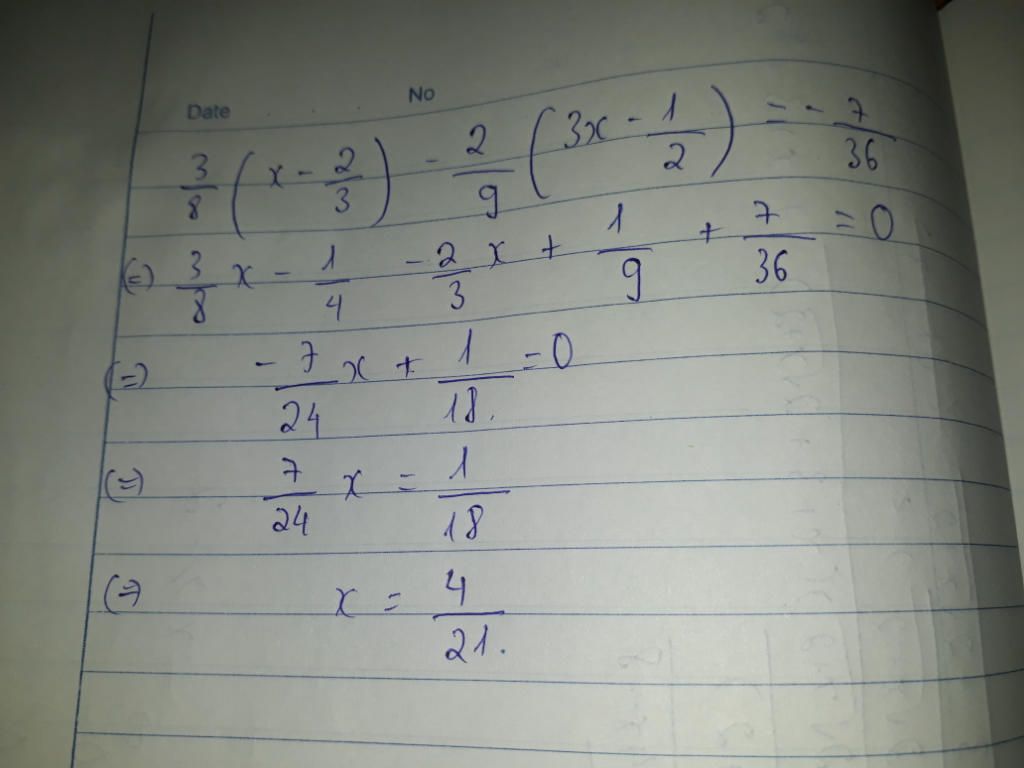 Date No
3/8 (x - 2/3) - 2/9 (3x - 1/2) = - 7/36
(=) 3/8 x - 1/4 - 2/3 x + 1/9 + 7/36 = 0
(=) - 7/24 x + 1/18. = 0
(=) 7/24 x = 1/18
(=) x = 4/21.